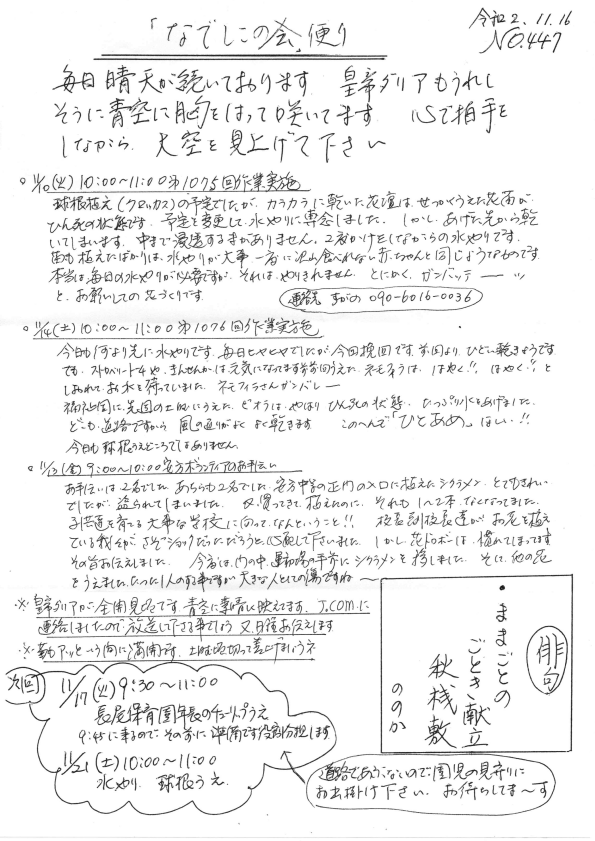 令和2.11.16
NO.447
「なでしこの会」便り
毎日晴天が続いております 皇帝ダリアもうれし
そうに青空に胸をはって咲いてます 心で拍手を
しながら、大空を見上げて下さい
○11/10(火)10:00〜11:00第1075回作業実施
球根植え(クロッカス)の予定でしたが、カラカラに乾いた花壇は、せっかくうえた花苗が
ひん死の状態です。予定を変更して、水やりに専念しました。しかし、あげた先から乾
いてしまいます。中まで浸透するまがありません。2度がけをしながらの水やりです。
苗も植えたばかりは、水やりが大事 一番に沢山食べれない赤ちゃんと同じようなものです
本当は毎日の水やりが必要ですが、それは、やりきれません。とにかく、ガンバッテーーッ
と、お願いしての花づくりです。
連絡先 すがの 090-6016-0036
○11/14(土)10:00〜11:00第1076回作業実施
今日も何より先に水やりです。毎日ヒヤヒヤでしたが今回挽回です。前回より、ひどい乾きようです
でも、ストロベリートーチや、まんせんかは元気になってます 前回うえた、ネモフィラは、はやく!! はやく!!と
しおれて、お水を待っていました。ネモフィラさんガンバレー
福祉園に先回の土の所にうえた、ビオラは、やはりひん死の状態。たっぷり水をあげました。
どこも、道路ですから 風の通りがよくよく乾きます このへんで「ひとあめ」ほしい!!
今日も球根うえどころではありません。
○11/13(金)9:00〜10:00安方ボランティアのお手伝い
お手伝いは2名でした。あちらも2名でした。安方中学の正門の入口に植えたシクラメン、とてもきれい
でしたが、盗られてしまいました。又、買ってきて、植えたのに、それも1〜2本、なくなってました。
子供達を育てる大事な学校に向って、なんということ!! 校長副校長達が、お花を植え
ている我々が、さぞショックだっただろうと、心配して下さいました。しかし、花ドロボーは、慣れてしまってます
その旨お伝えしました。今回は、門の中、運動場の手前にシクラメンを移しました。そして、他の花
をうえました。たった1人のする事ですが 大きな人としての傷ですね〜
※皇帝ダリアが全開見頃です 青空に素晴に映えてます。J.comに
連絡しましたので放送して下さる事でしょう 又、日程お伝えします
※菊もアッという間に満開です。土曜日に切って差上げましょうネ
次回
11/17(火)9:30〜11:00
長尾保育園年長のチューリップうえ
9:45に来るので その前に準備です 役割分担します
11/21(土)10:00〜11:00
水やり 球根うえ
道路であぶないので園児の見守りに
お出掛け下さい。お待ちしてま〜す
俳句
・ままごとの
ごとき献立
秋桟敷
ののか